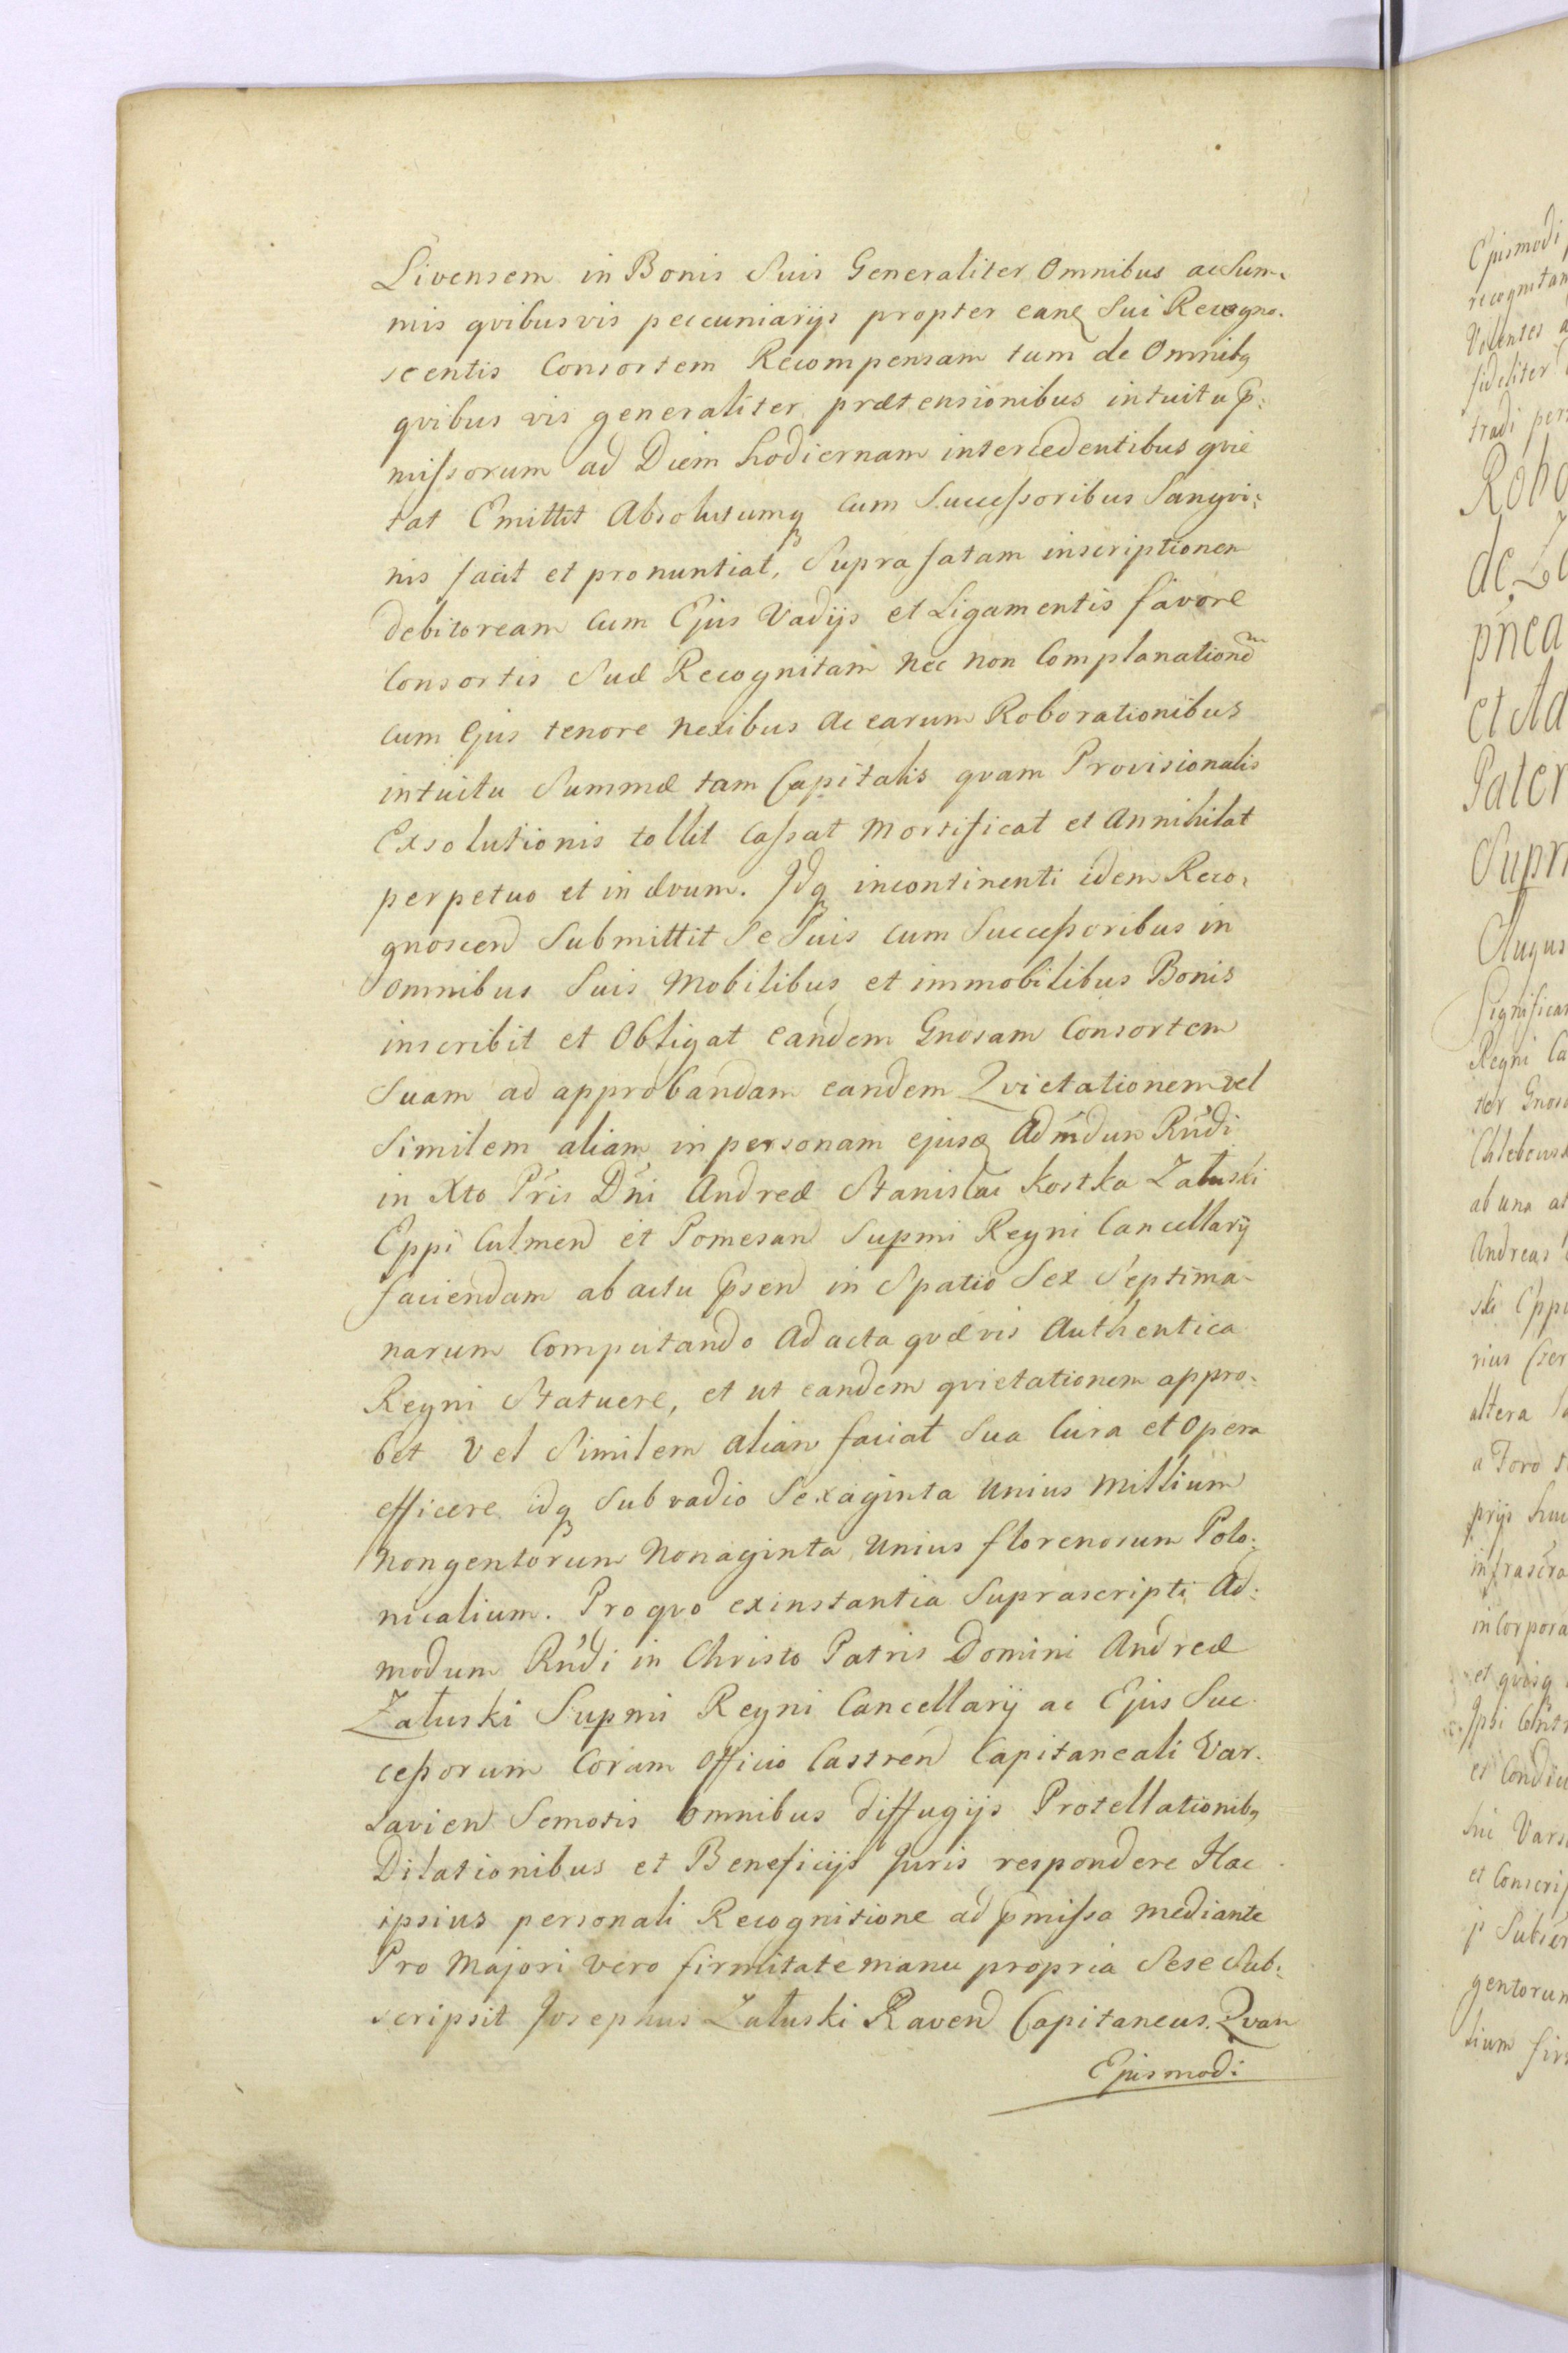 Livensem in Bonis Suis Generaliter Omnibus ac Sum-
mis qvibusvis peccuniarijs propter eanq Sui Recogno-
scentis Consortem Recompensam tum de Omnibq
qvibus vis generaliter prætensionibus intuitu p-
missorum ad Diem hodiernam intercedentibus qvie
tat Emittit Absolutumq cum Successoribus Sangvi-
nis facit et pronuntiat, Supra fatam inscriptionem
debitoream cum Ejus Vadijs et Ligamentis favore
Consortis Suæ Recognitam nec non Complanationem
cum Ejus tenore nexibus ac earum Roborationibus
intuitu Summæ tam Capitalis qvam Provisionalis
Exsolutionis tollit Cassat Mortificat et Annihilat
perpetuo et in ævum. Idq incontinenti idem Reco-
gnoscen Submittit Se Suis cum Successoribus in
omnibus Suis Mobilibus et immobilibus Bonis
inscribit et Obligat eandem Gnosam Consortem
Suam ad approbandam eandem Qvietationem vel
Similem aliam in personam ejusq Admdun Rndi
in Xto Pris Dni Andreæ Stanislai Kostka Załuski
Eppi Culmen et Pomesan Supmi Regni Cancellarij
faciendam ab actu psen in Spatio Sex Septima-
narum Computando Ad acta qvævis Authentica
Regni Statuere, et ut eandem qvietationem appro-
bet Vel Similem aliam faciat Sua Cura et Opera
efficere idq Sub vadio Sexaginta Unius Millium
Nongentorum Nonaginta Unius florenorum Polo-
nicalium. Pro qvo ex instantia Suprascripti Ad-
modum Rndi in Christo Patris Domini Andreæ
Załuski Supmi Regni Cancellarij ac Ejus Suc
cessorum Coram Officio Castren Capitaneali Var-
savien Semotis Omnibus diffugijs Protellationibq
Dilationibus et Beneficijs Juris respondere Hac
ipsius personali Recognitione ad pmissa mediante
Pro Majori vero firmitate manu propria Sese Sub-
scripsit Josephus Załuski Raven Capitaneus. Qvam
Ejusmodi